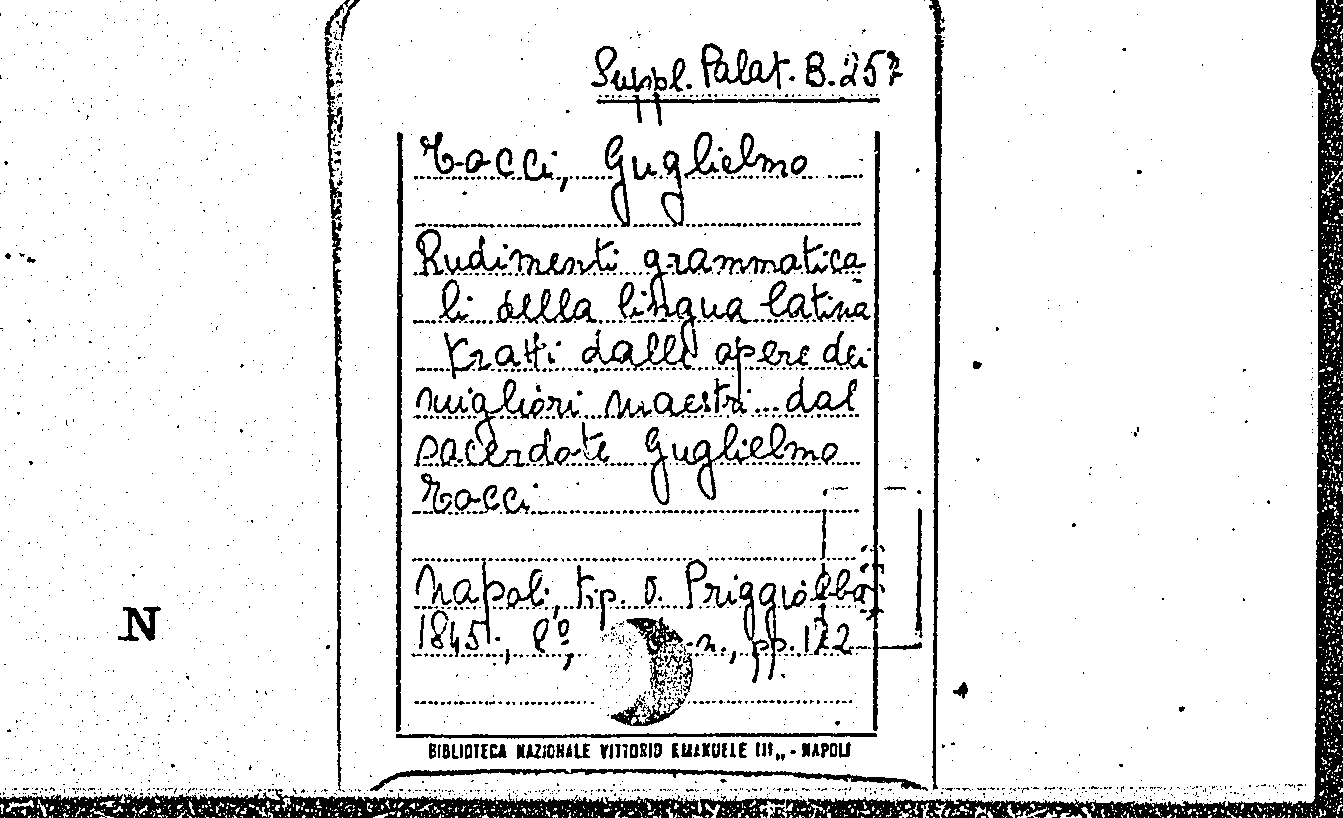 Suppl. Palat. B. 257
Tocci, Guglielmo
Rudimenti grammatica
li della lingua latina
tratti dalle opere dei
migliori maestri dal
sacerdote Guglielmo
Tocci
Napoli, tip. O. Priggiobba
1845, 8º, -n., pp. 122
BIBLIOTECA NAZIONALE VITTORIO EMANUELE III„ - NAPOLI
N